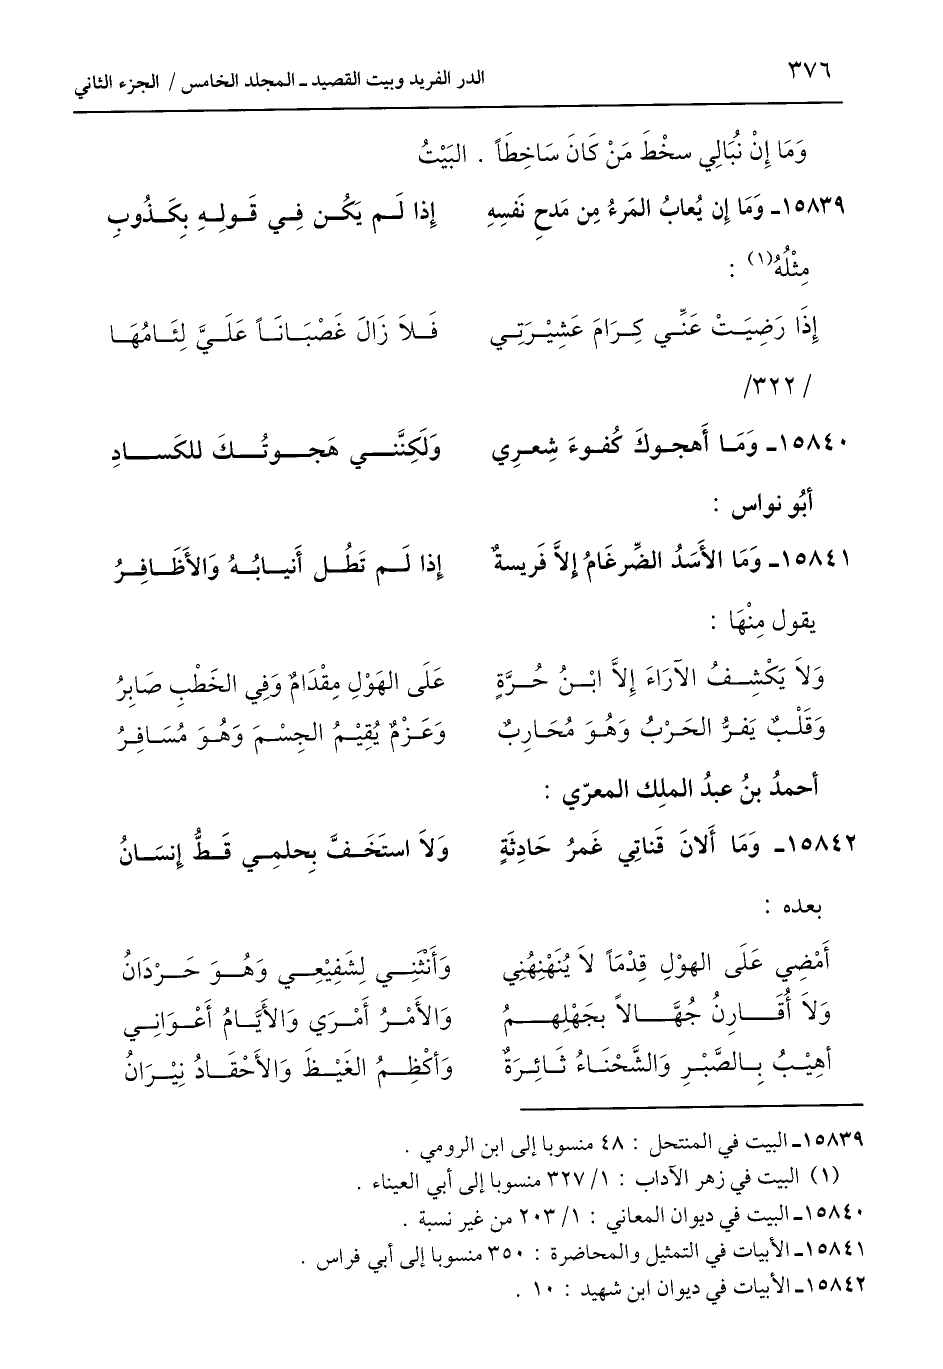 ٣٧٦ الدر الفريد وبيت القصيد ـ المجلد الخامس / الجزء الثاني
وَمَا إِنْ نُبَالِي سخْطَ مَنْ كَانَ سَاخِطَاً . البَيْتُ
١٥٨٣٩ـ وَمَا إِن يُعابُ المَرءُ مِن مَدحِ نَفسِهِ إِذا لَـم يَكُـن فِـي قَـولِـهِ بِكَـذُوبِ
مِثْلُهُ(١) :
إِذَا رَضِيَـتْ عَنِّـي كِـرَامَ عَشِيْـرَتِـي فَـلاَ زَالَ غَضْبَـانَـاً عَلَـيَّ لِئَـامُهَـا
/ ٣٢٢/
١٥٨٤٠ـ وَمَـا أَهجـوكَ كُفـوءَ شِعـرِي وَلَكِنَّنـــي هَجـــوتُـــكَ للكَســـادِ
أبُو نواس :
١٥٨٤١ـ وَمَا الأَسَدُ الضِّرغَامُ إِلاَّ فَريسةٌ إِذا لَـــم تَطُـل أَنيـابُـهُ وَالأَظَـافِـرُ
يقول مِنْهَا :
وَلاَ يَكْشِـفُ الآرَاءَ إِلاَّ ابْـنُ حُـرَّةٍ عَلَى الهَوْلِ مِقْدَامٌ وَفِي الخَطْبِ صَابِرُ
وَقَلْـبٌ يَفـرُّ الحَـرْبُ وَهُـوَ مُحَـارِبٌ وَعَـزْمٌ يُقِيْـمُ الجِسْـمَ وَهُـوَ مُسَـافِـرُ
أحمدُ بنُ عبدُ الملِك المعرّي :
١٥٨٤٢ـ وَمَا أَلانَ قَناتِي غَمرُ حَادثَةٍ وَلاَ استَخَـفَّ بِحلمِـي قَـطُّ إِنسَـانُ
بعده :
أَمْضِي عَلَى الهوْلِ قِدْمَاً لاَ يُنَهْنِهُنِي وَأَنْثَنِـي لِشَفِيْعِـي وَهُـوَ حَـرْدَانُ
وَلاَ أُقَـارِنُ جُهَّـالاً بِجَهْلِهِـمُ وَالأَمْـرُ أَمْـرَي وَالأَيَّـامُ أَعْـوَانِـي
أهِيْـبُ بِـالصَّبْـرِ وَالشَّحْنَـاءُ ثَـائِـرَةٌ وَأكْظِـمُ الغَيْـظَ وَالأَحْقَـادُ نِيْـرَانُ
١٥٨٣٩ـ البيت في المنتحل : ٤٨ منسوبا إلى ابن الرومي .
(١) البيت في زهر الآداب : ١/ ٣٢٧ منسوبا إلى أبي العيناء .
١٥٨٤٠ـ البيت في ديوان المعاني : ١/ ٢٠٣ من غير نسبة .
١٥٨٤١ـ الأبيات في التمثيل والمحاضرة : ٣٥٠ منسوبا إلى أبي فراس .
١٥٨٤٢ـ الأبيات في ديوان ابن شهيد : ١٠ .